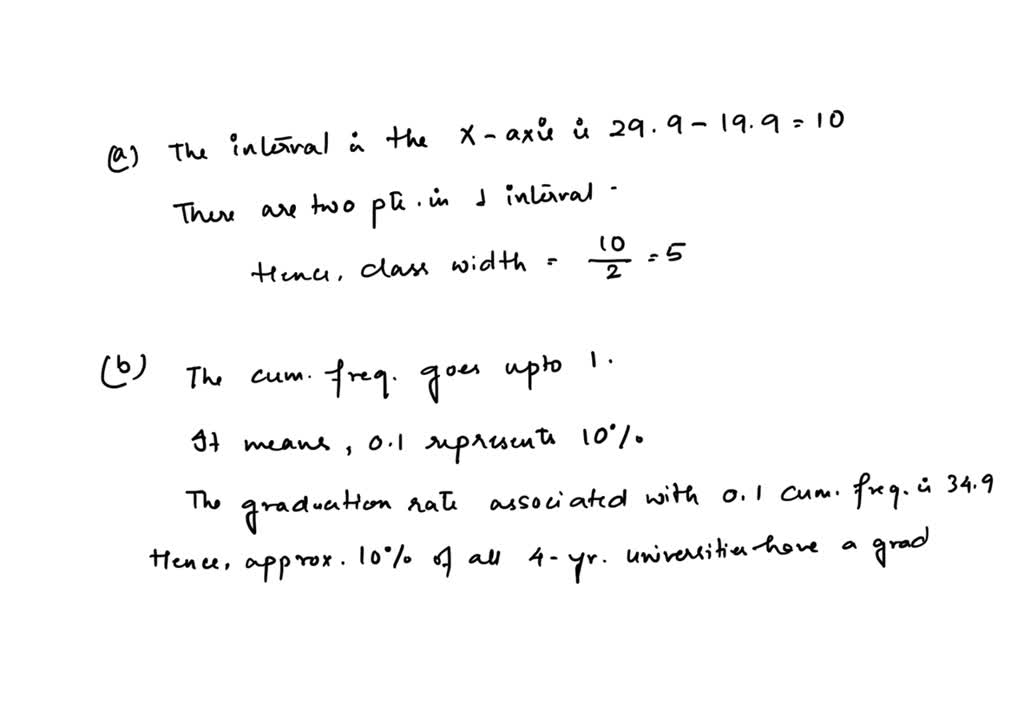 (a) The interval in the X-axis is 29.9 - 19.9 = 10
There are two pts. in 1 interval.
Hence, class width = 10/2 = 5
(b) The cum. freq. goes upto 1.
It means, 0.1 represents 10%.
The graduation rate associated with 0.1 cum. freq. is 34.9
Hence, approx. 10% of all 4-yr. universities have a grad